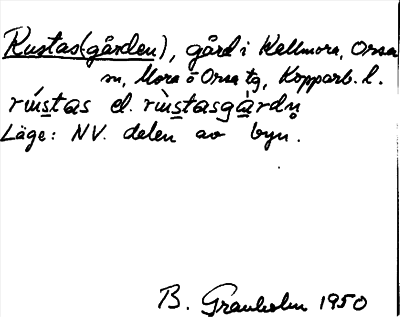 Rustas(gården), gård i Kellmora, Orsa
sn, Mora o Orsa tg, Kopparb. l.
rústas el. rùstasgàrdn̥
Läge: NV. delen av byn.
B. Granholm 1950